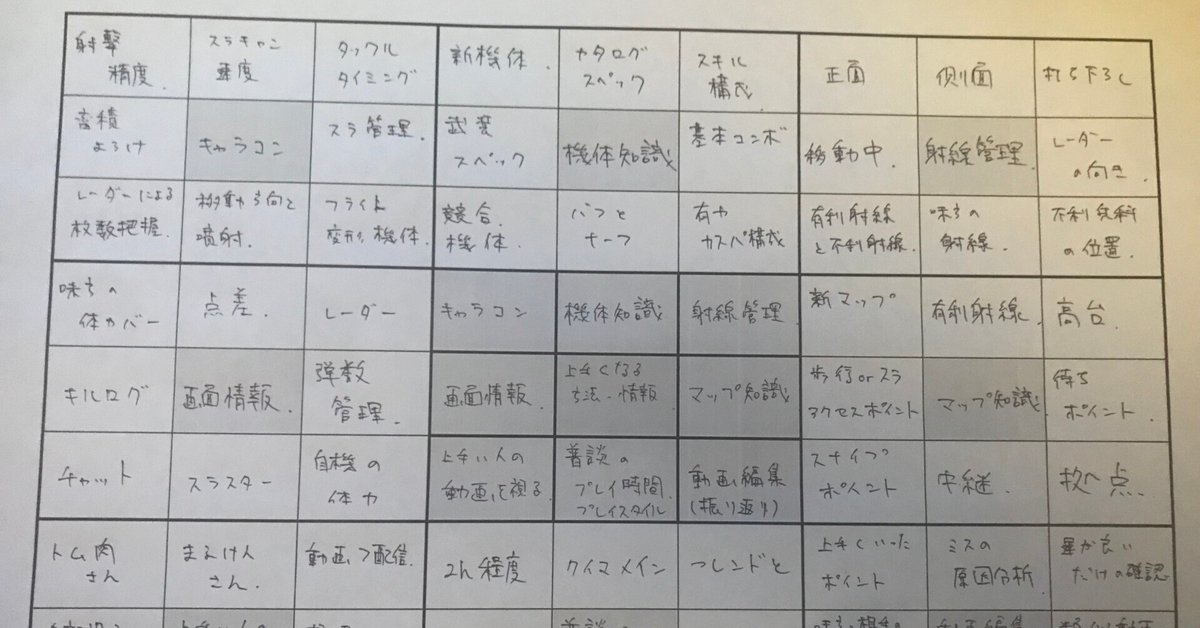 射撃精度
スラキャン速度
タックルタイミング
新機体
カタログスペック
スキル構成
正面
側面
打ち下ろし
蓄積よろけ
キャラコン
スラ管理
武装スペック
機体知識
基本コンボ
移動中
射線管理
レーダーの向き
レーダーによる枚数把握
移動方向と噴射
フライト変形機体
競合機体
バフとナーフ
有力カスパ構成
有利射線と不利射線
味方の射線
不利兵科の位置
味方の体力カバー
点差
レーダー
キャラコン
機体知識
射線管理
新マップ
有利射線
高台
キルログ
画面情報
弾数管理
画面情報
上手くなる方法・情報
マップ知識
歩行orスラアクセスポイント
マップ知識
待ちポイント
チャット
スラスター
自機の体力
上手い人の動画を視る
普談のプレイ時間プレイスタイル
動画編集(振り返り)
スナイプポイント
中継
拠点
トム肉さん
まるけんさん
動画で配信
2h程度
クイマメイン
フレンドと
上手くいったポイント
ミスの原因分析
星が良いだけの確認